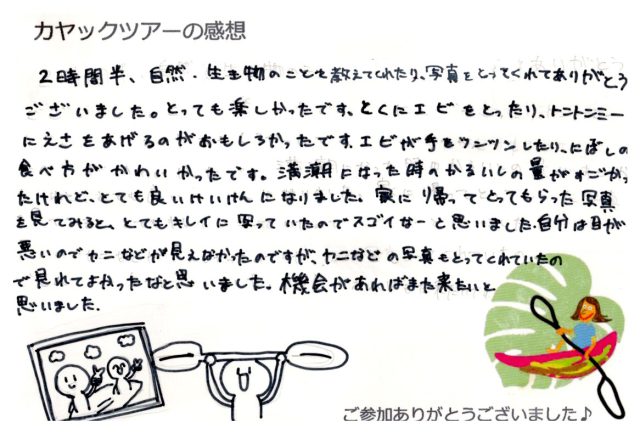 カヤックツアーの感想
2時間半、自然・生き物のことも教えてくれたり、写真をとってくれてありがとう
ございました。とっても楽しかったです、とくにエビをとったり、トントンミー
にえさをあげるのがおもしろかったです。エビが手をツンツンしたり、にぼしの
食べ方がかわいかったです。満潮になった時のかるいしの量がすごかっ
たけれど、とても良いけいけんになりました。家に帰ってとってもらった写真
を見てみると、とてもキレイに写っていたのでスゴイなーと思いました。自分は目が
悪いのでカニなどが見えなかったのですが、カニなどの写真もとってくれていたの
で見れてよかったなと思いました。機会があればまた来たいと
思いました。
ご参加ありがとうございました♪